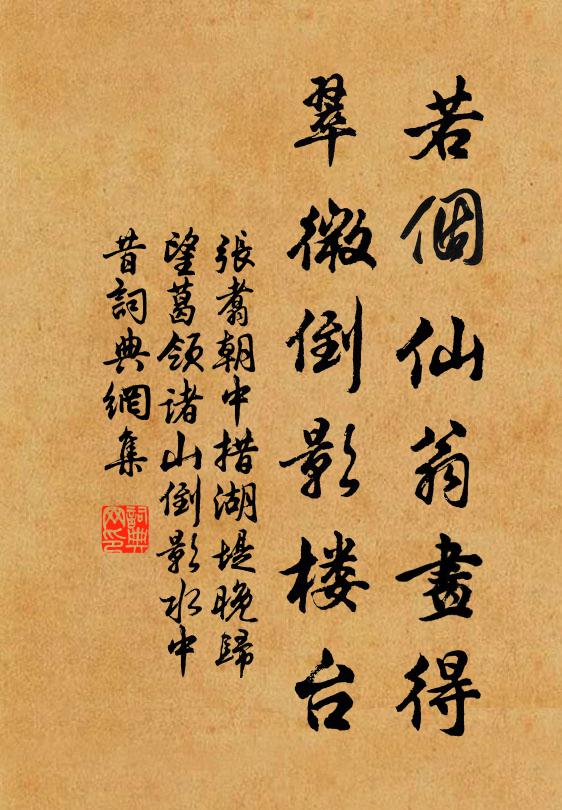 若個仙翁畫得
翠微倒影楼台
張翥朝中措湖堤晚歸
望葛領諸山倒影水中
昔詞典網集
詞典
网印